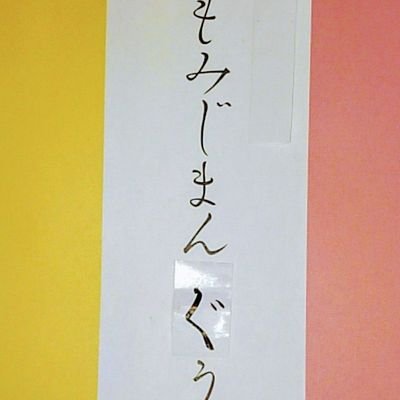 もみじまんぐう